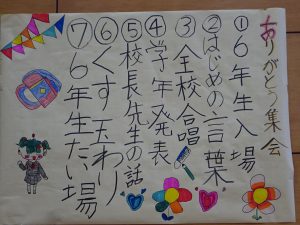 ありがとう集会
①6年生入場
②はじめの言葉
③全校合唱
④学年発表
⑤校長先生の話
⑥くす玉わり
⑦6年生たい場